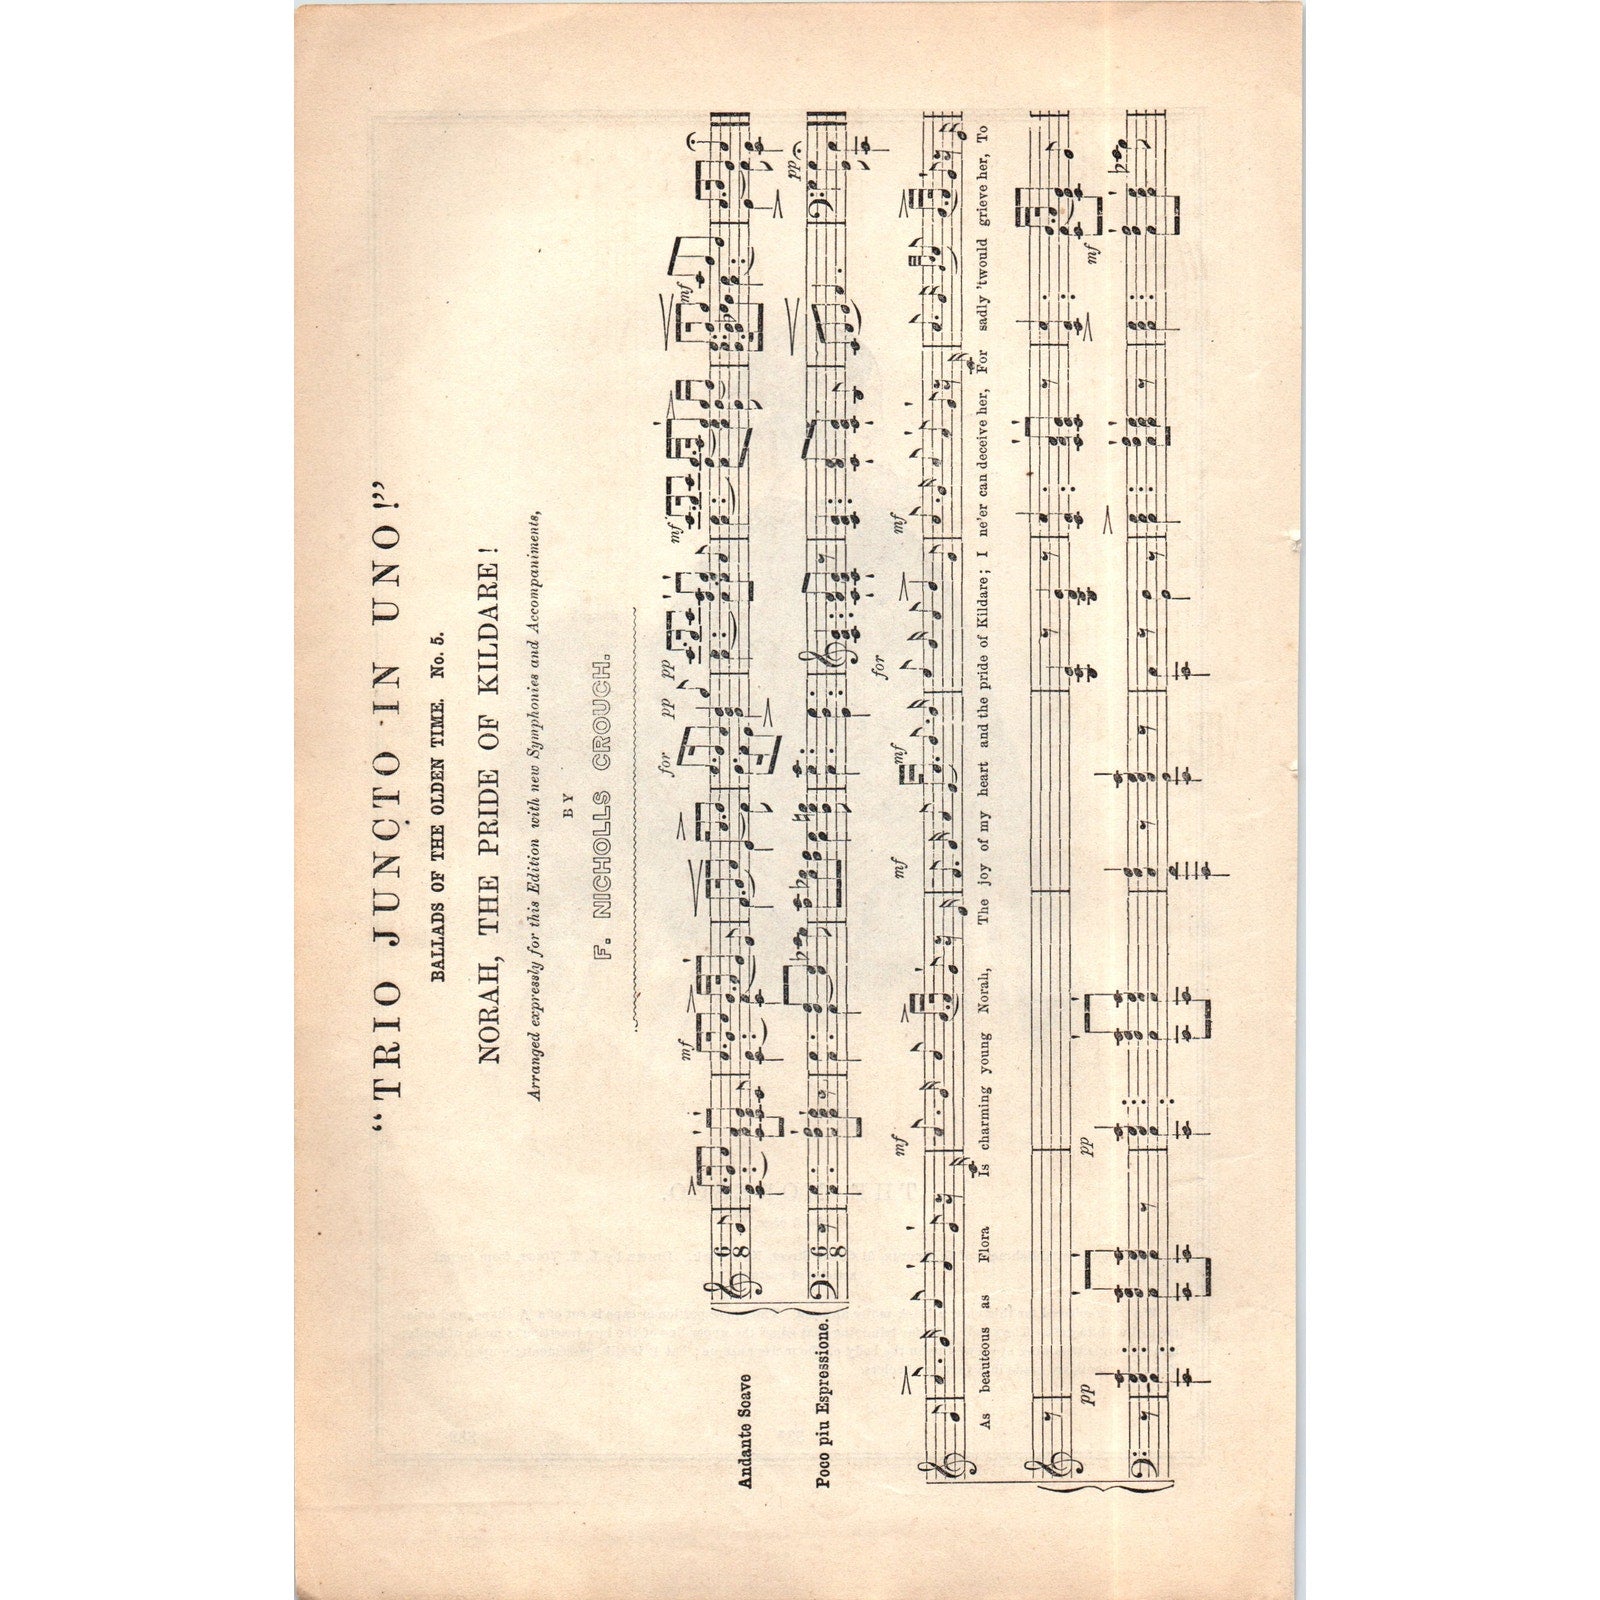 "TRIO JUNCTO IN UNO!"
BALLADS OF THE OLDEN TIME. No. 5.
NORAH, THE PRIDE OF KILDARE!
Arranged expressly for this Edition with new Symphonies and Accompaniments,
BY
F. NICHOLLS CROUCH.
Andante Soave
Poco piu Espressione.
6 8
mf for pp pp mf mf
6 8
pp
mf mf mf for mf
As beauteous as Flora Is charming young Norah, The joy of my heart and the pride of Kildare; I ne'er can deceive her, For sadly 'twould grieve her, To
pp pp mf